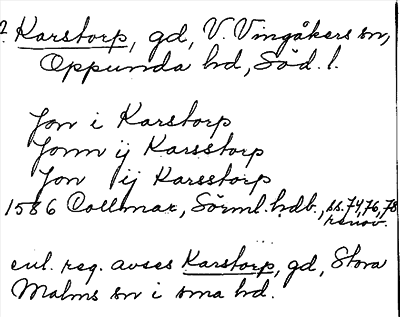 ?. Karstorp, gd, V. Vingåkers sn,
Oppunda hd, Söd. l.
Jon i Karstorp
Jonn ij Karsstorp
Jon ij Karsstorp
1586 Collmar, Sörml. hdb., ss. 74, 76, 78
renov.
enl. reg. avses Karstorp, gd, Stora
Malms sn i sma hd.